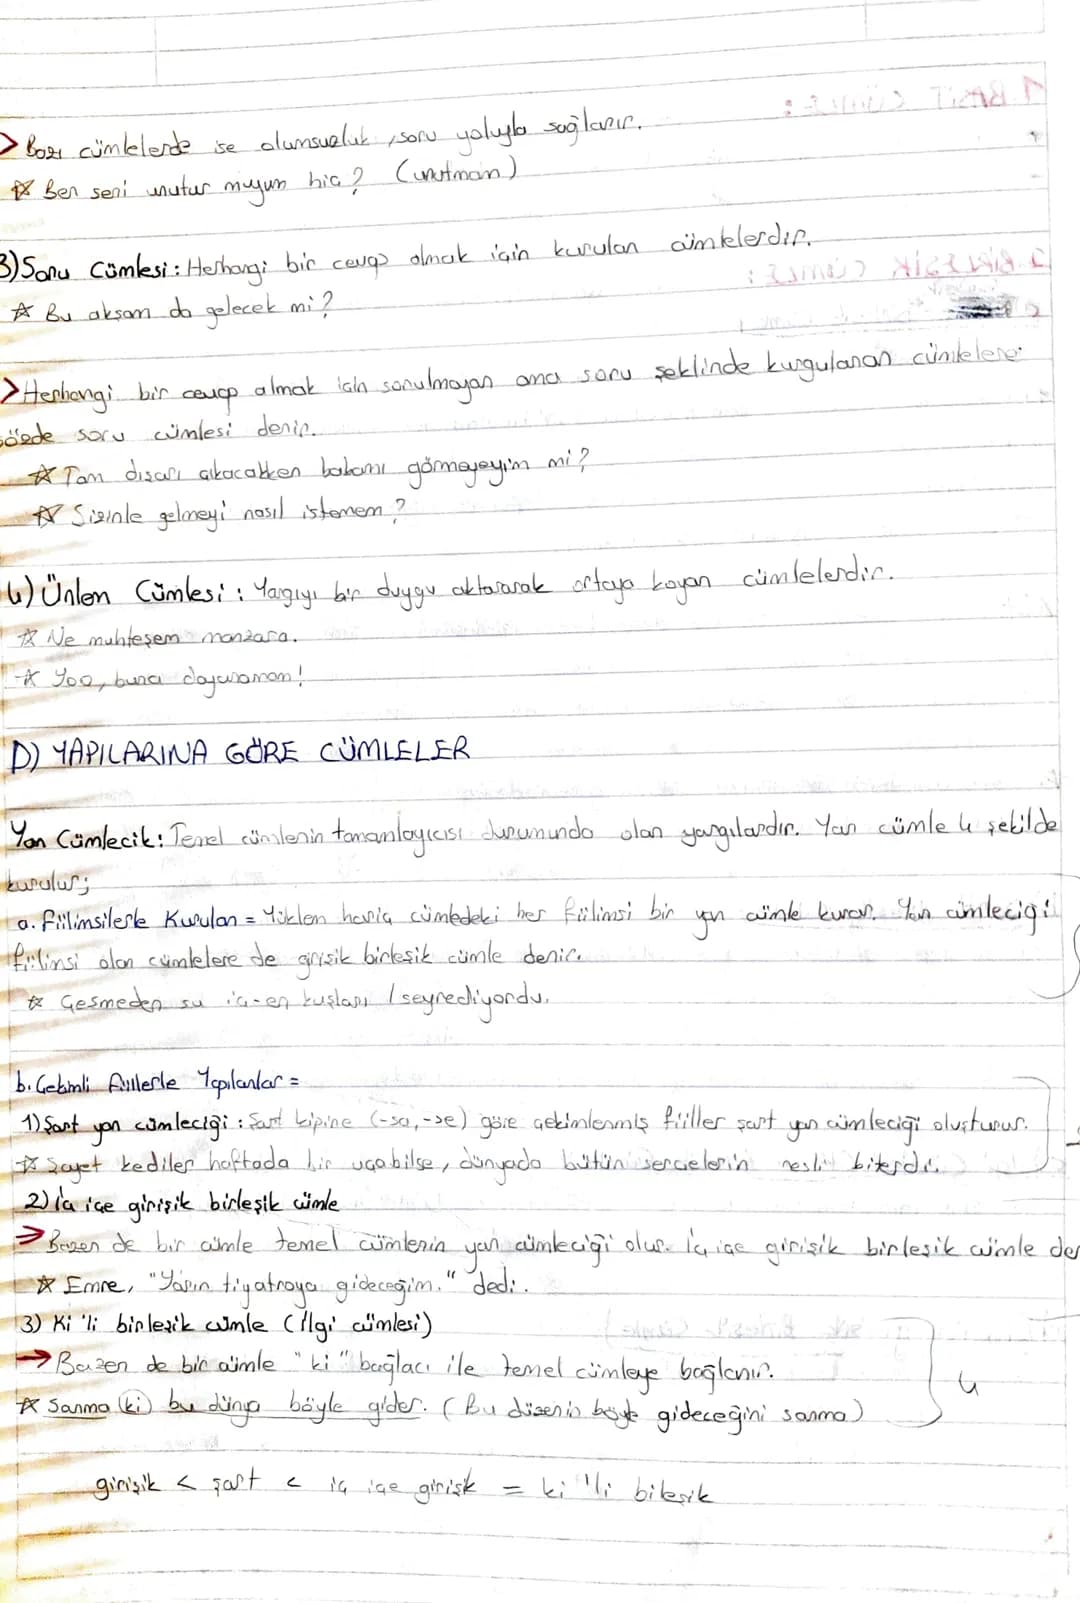 > Bazı cümlelerde ise olumsuzluk, soru yoluyla sağlanır.
☆ Ben seni unutur muyum hiç? (unutmam)
3) Soru Cümlesi: Herhangi bir cevap almak için kurulan cümlelerdir.
☆ Bu akşam da gelecek mi?
> Herhangi bir cevap almak için sorulmayan ama soru şeklinde kurgulanan cümlelere
sözde soru cümlesi denir.
☆ Tam dışarı çıkacakken babamı görmeyeyim mi?
☆ Sizinle gelmeyi nasıl istemem?
4) Ünlem Cümlesi: Yargıyı bir duygu aktararak ortaya koyan cümlelerdir.
☆ Ne muhteşem manzara.
☆ Yoo, buna dayanamam!
D) YAPILARINA GÖRE CÜMLELER
Yan Cümlecik: Temel cümlenin tamamlayıcısı durumunda olan yargılardır. Yan cümle 4 şekilde
kurulur;
a. Fiilimsilerle Kurulan = Yüklem hariç cümledeki her fiilimsi bir yan cümle kurar. Yan cümleciği
fiilimsi olan cümlelere de girişik birleşik cümle denir.
☆ Çeşmeden su iç-en kuşları / seyrediyordu.
b. Çekimli Fiillerle Yapılanlar =
1) Şart yan cümleciği: Şart kipine (-sa, -se) göre çekimlenmiş fiiller şart yan cümleciği oluşturur.
☆ Şayet kediler haftada bir uçabilse, dünyada bütün serçelerin nesli biterdi.
2) İç içe girişik birleşik cümle
→ Bazen de bir cümle temel cümlenin yan cümleciği olur. İç içe girişik birleşik cümle der
☆ Emre, "Yarın tiyatroya gideceğim." dedi.
3) Ki 'li birleşik cümle (İlgi cümlesi)
→ Bazen de bir cümle "ki" bağlacı ile temel cümleye bağlanır.
☆ Sanma (ki) bu dünya böyle gider. (Bu düzenin böyle gideceğini sanma)
4
girişik < şart < iç içe girişk = ki 'li bileşik